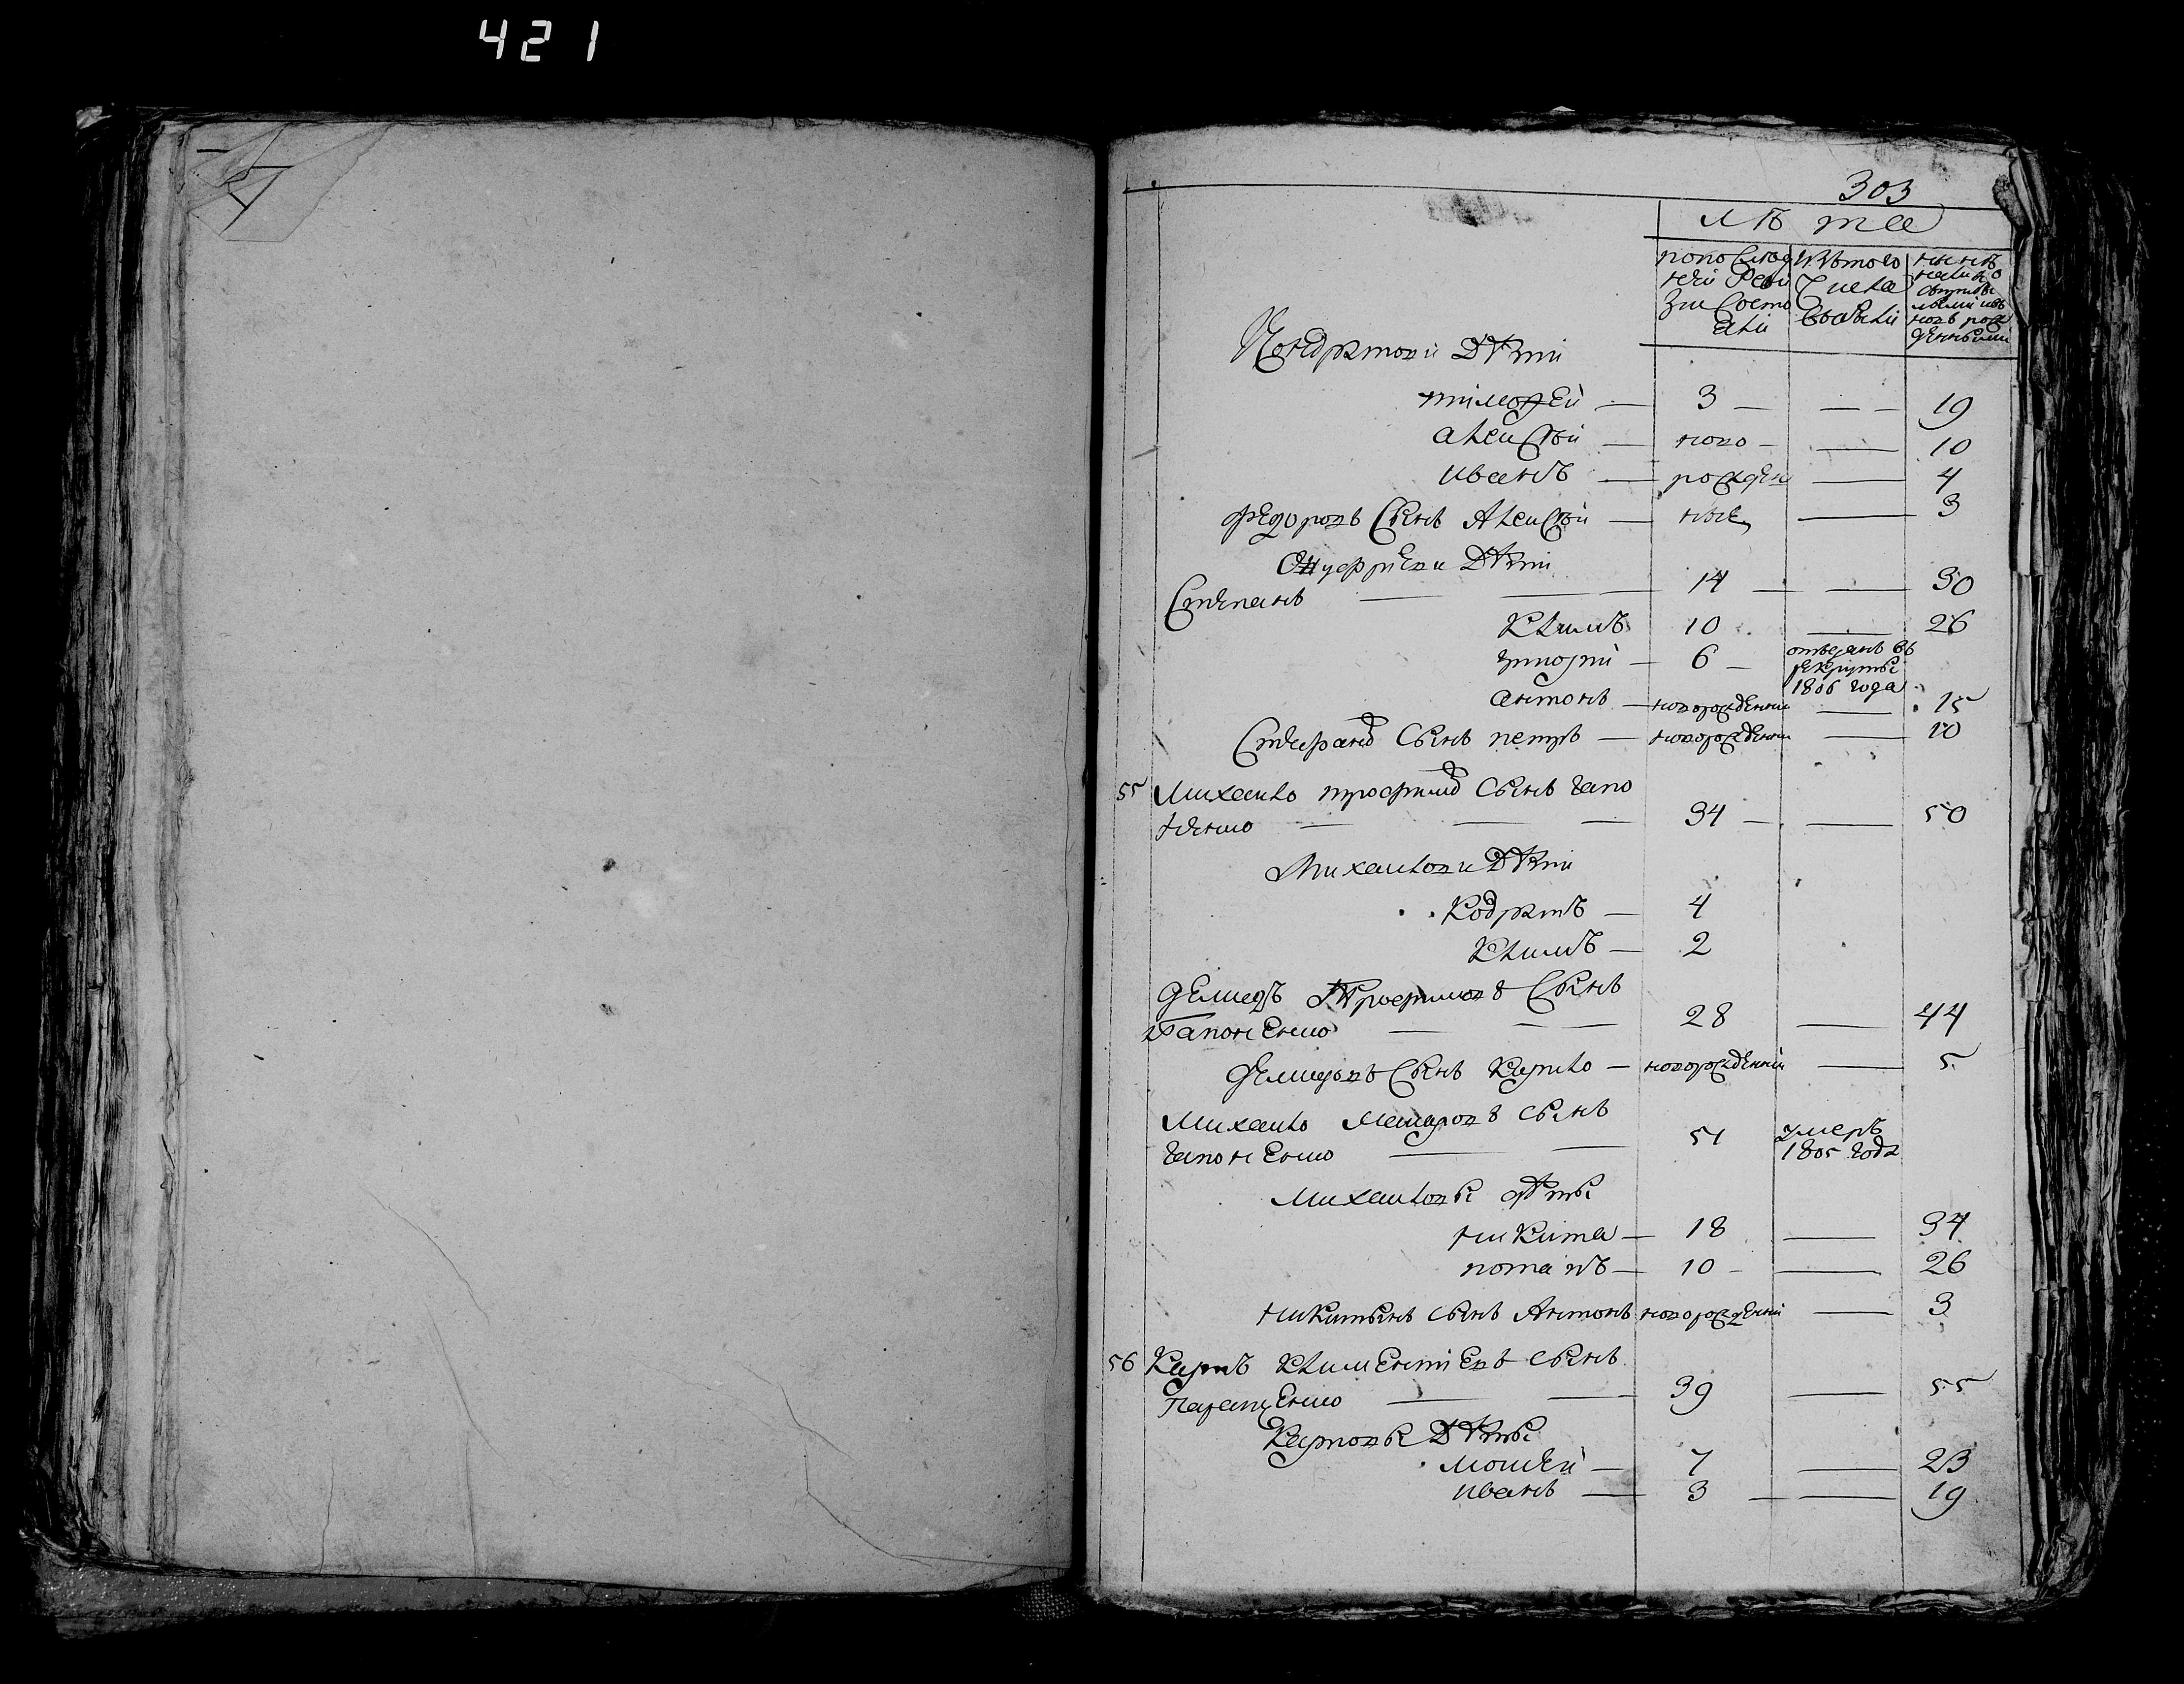 421
303
лѣта
попослед
ней Реви
зіи Состо
яли
Изътого
Числа
Выбыли
нынѣ
налицо
новь рож
денными
Кондратови Дѣти
тимофей — 3 — — 19
алексѣй — ново — — 10
иванъ — рожден — 4
федоровъ Сынъ Алексѣй — ные — 3
Онуфріеви Дѣти
Степанъ — 14 — — 30
Климъ 10 — 26
григорій — 6 — отъданъ въ
рекруты
1806 года
антонъ — новорожденный — 15
Стефановъ Сынъ петръ — новорожденный — 10
55 Михайло трофимовъ Сынъ гапо
ненко — 34 — — 50
Михайлови Дѣти
Кодратъ — 4
Климъ — 2
демидъ Трофимовъ Сынъ
Гапоненко — 28 — 44
Демидовъ Сынъ Кирило — новорожденный — 5
Михайло Макаровъ Сынъ
гапоненко — 51 умеръ
1805 года
Михайловы дѣты
никита — 18 — 34
потапъ — 10 — — 26
никитынъ Сынъ Антонъ новорожденный — 3
56 Карпъ Климентіевъ Сынъ
— 39 — 55
Карповы Дѣты
мойсей — 7 — 23
иванъ — 3 — — 19